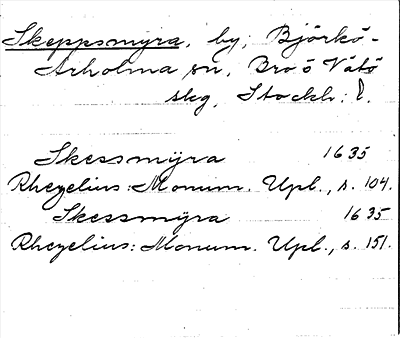 Skeppsmyra, by, Björkö-
Arholma sn, Bro o Vätö
skg, Stockh: l.
Skessmÿra 1635
Rhezelius: Monum. Upl., s. 104.
Skessmÿra 1635
Rhezelius: Monum. Upl., s. 151.